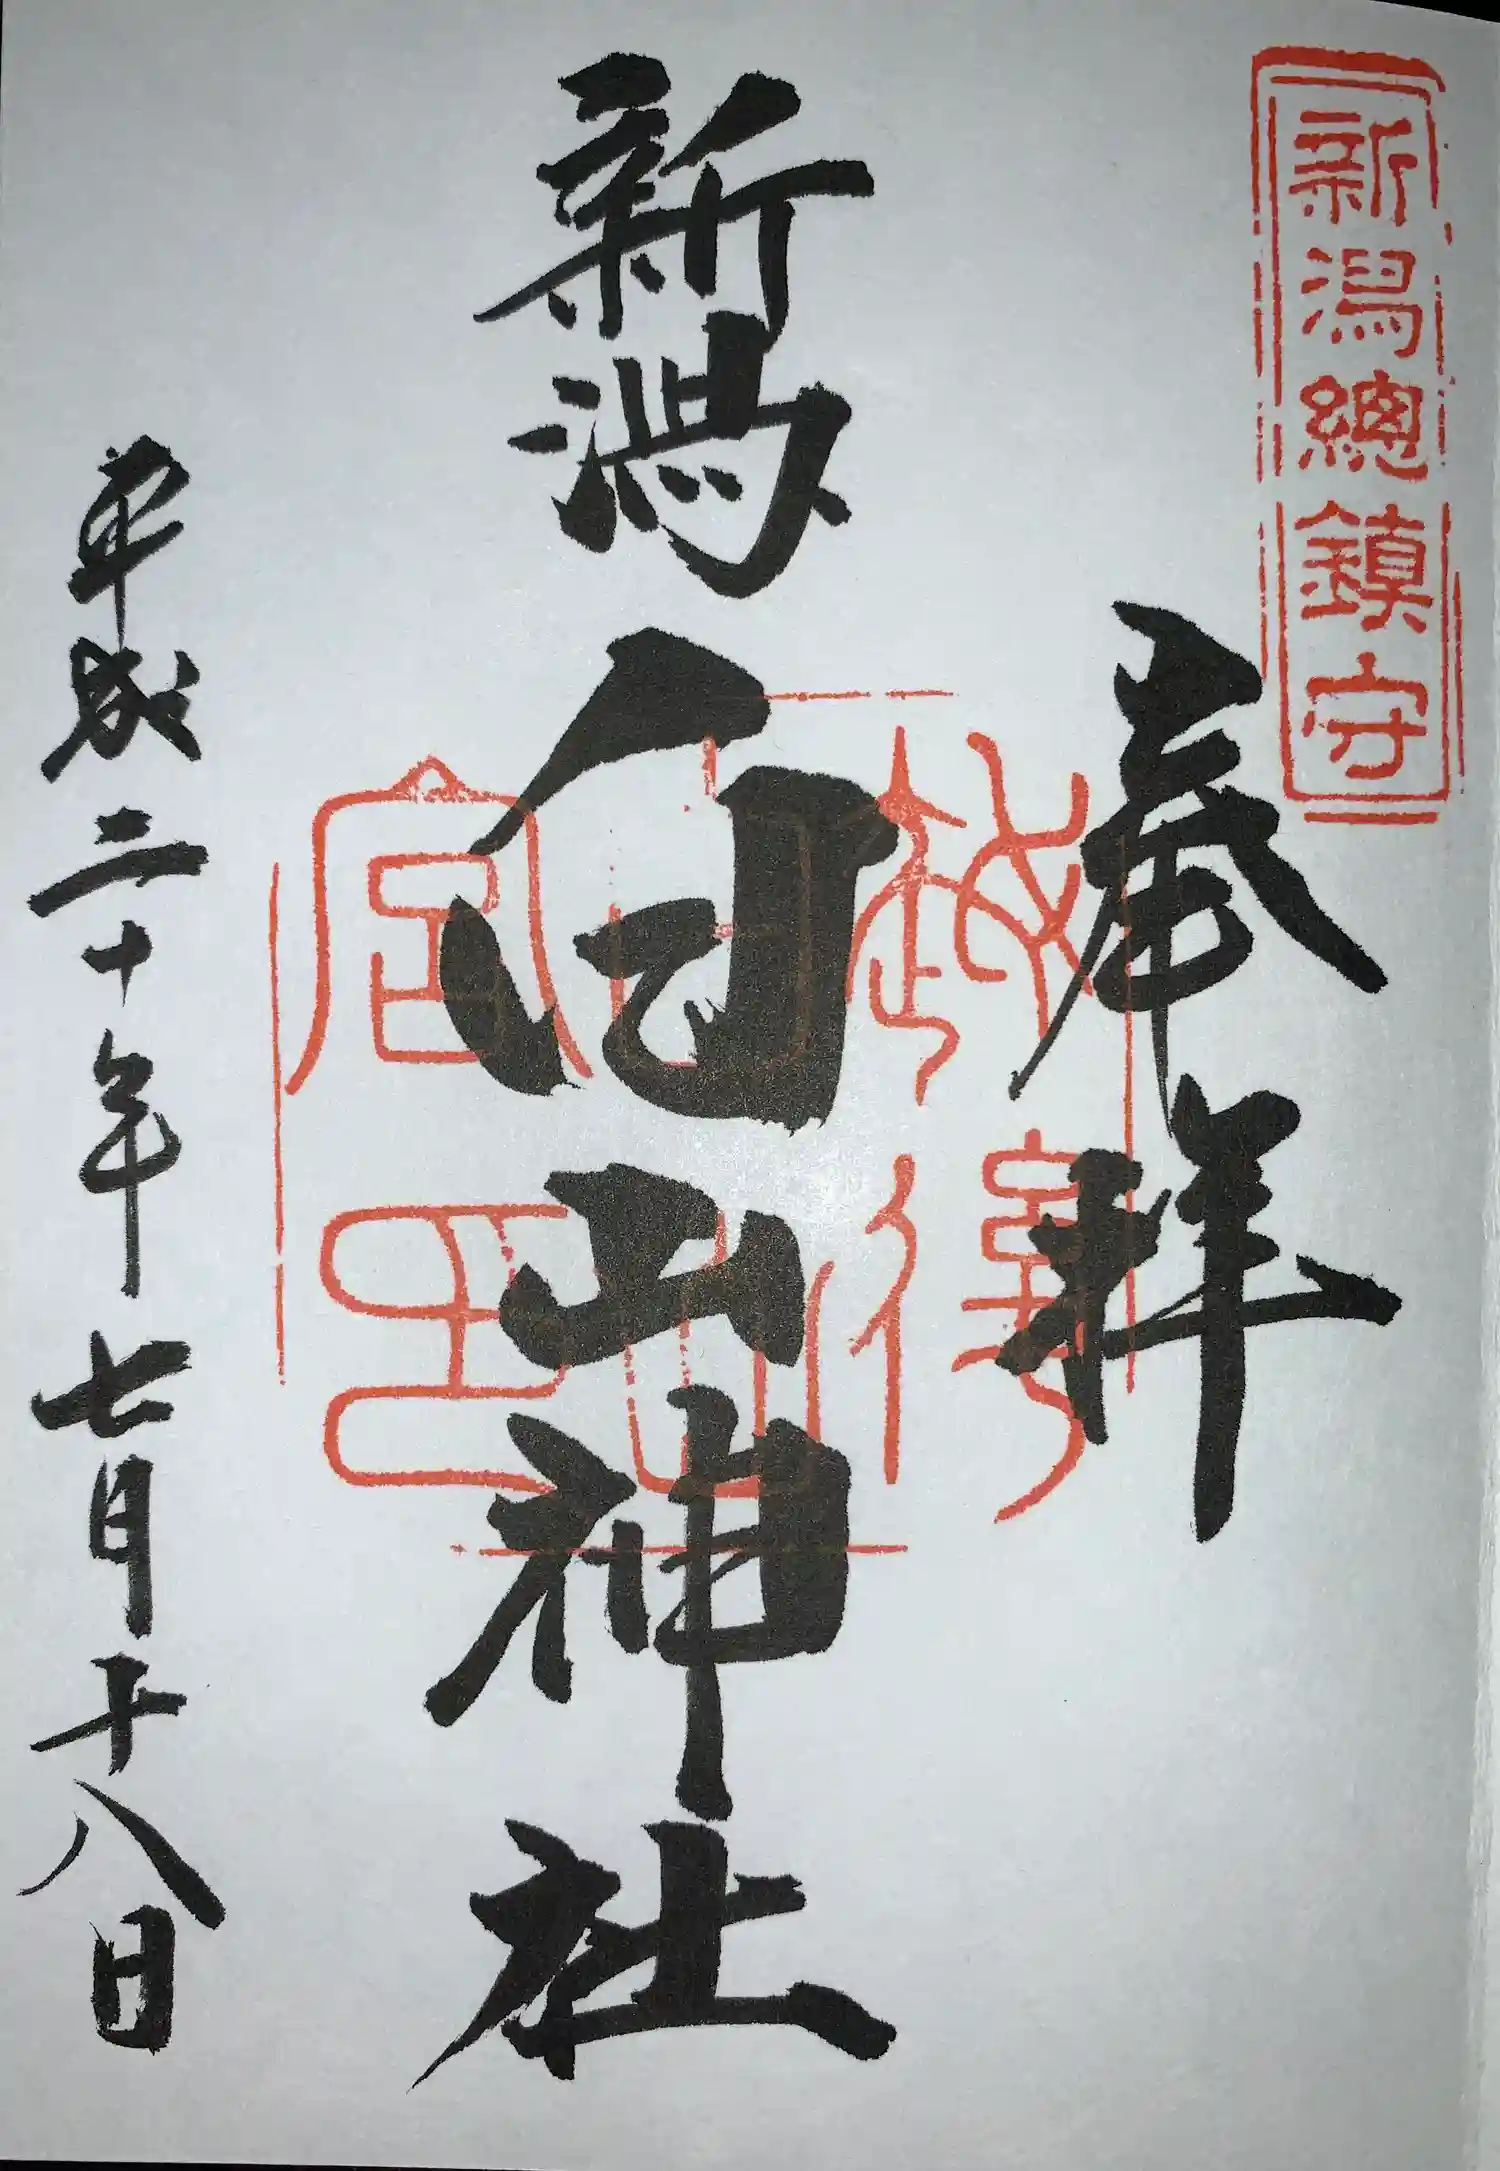 新潟總鎮守
奉拝
新潟白山神社
越後
白山
宮印
平成三十年七月十八日